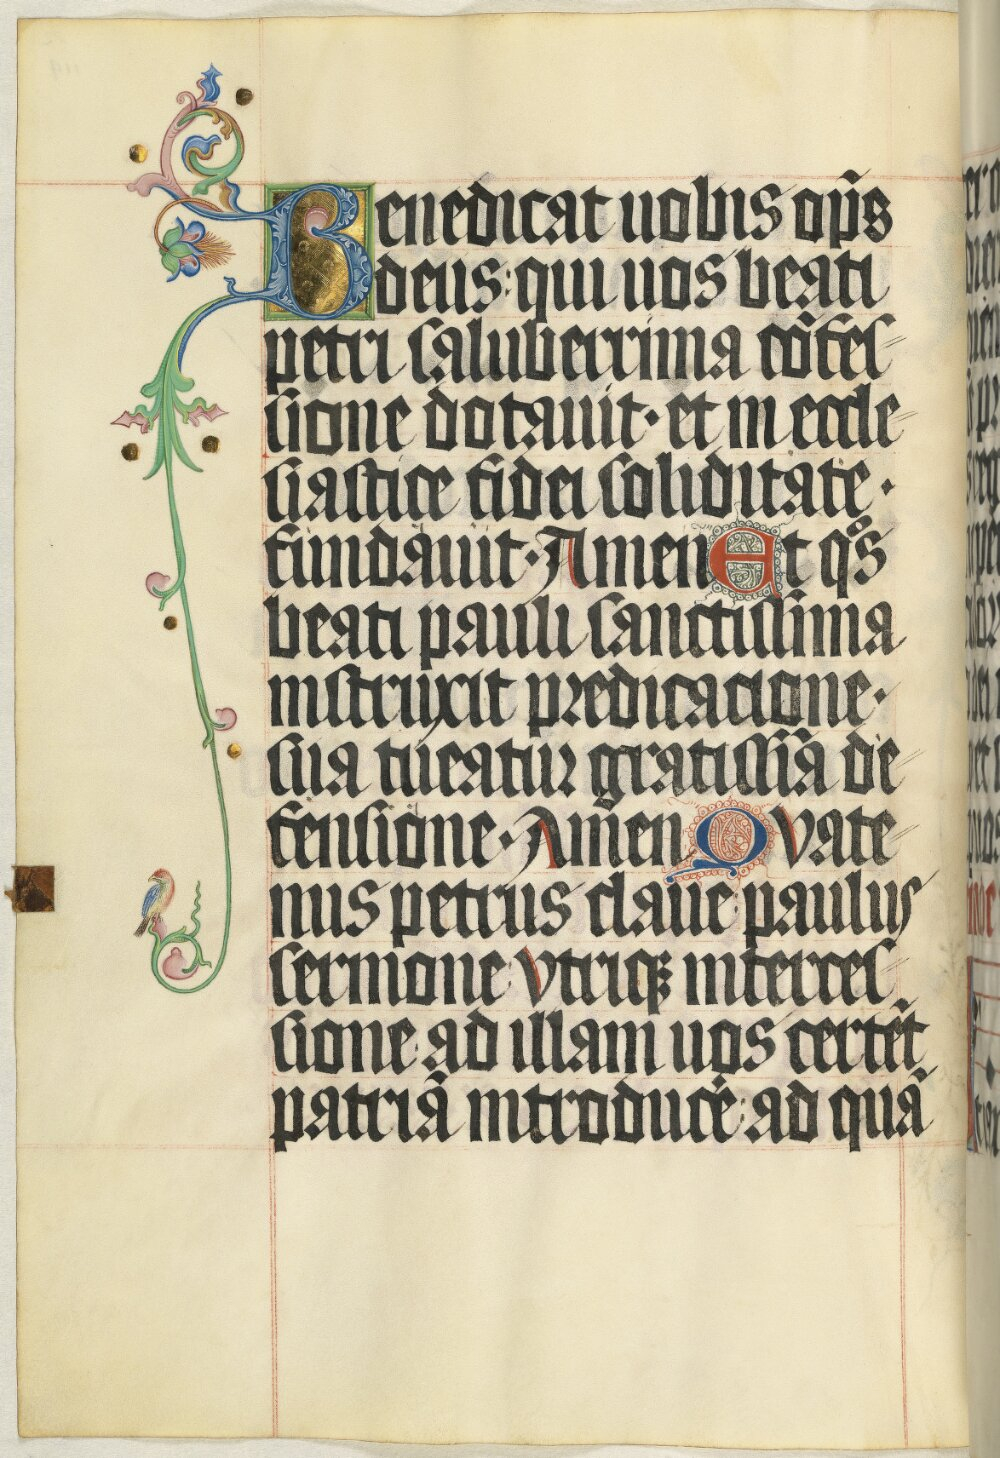 Benedicat uobis op̄s
deus: qui uos beati
petri saluberrima cōfes⸗
sione dotauit· et in eccle⸗
siastice fidei soliditate·
fundauit· Amen Et qͦs
beati pauli sanctissima
instruxit predicacione·
sua tueatur gratissīa de⸗
fensione· Amen Quate⸗
nus petrus claue: paulus
sermone: vtriqꝫ interces⸗
sione: ad illam uos certēt
patriā introducē: ad quā